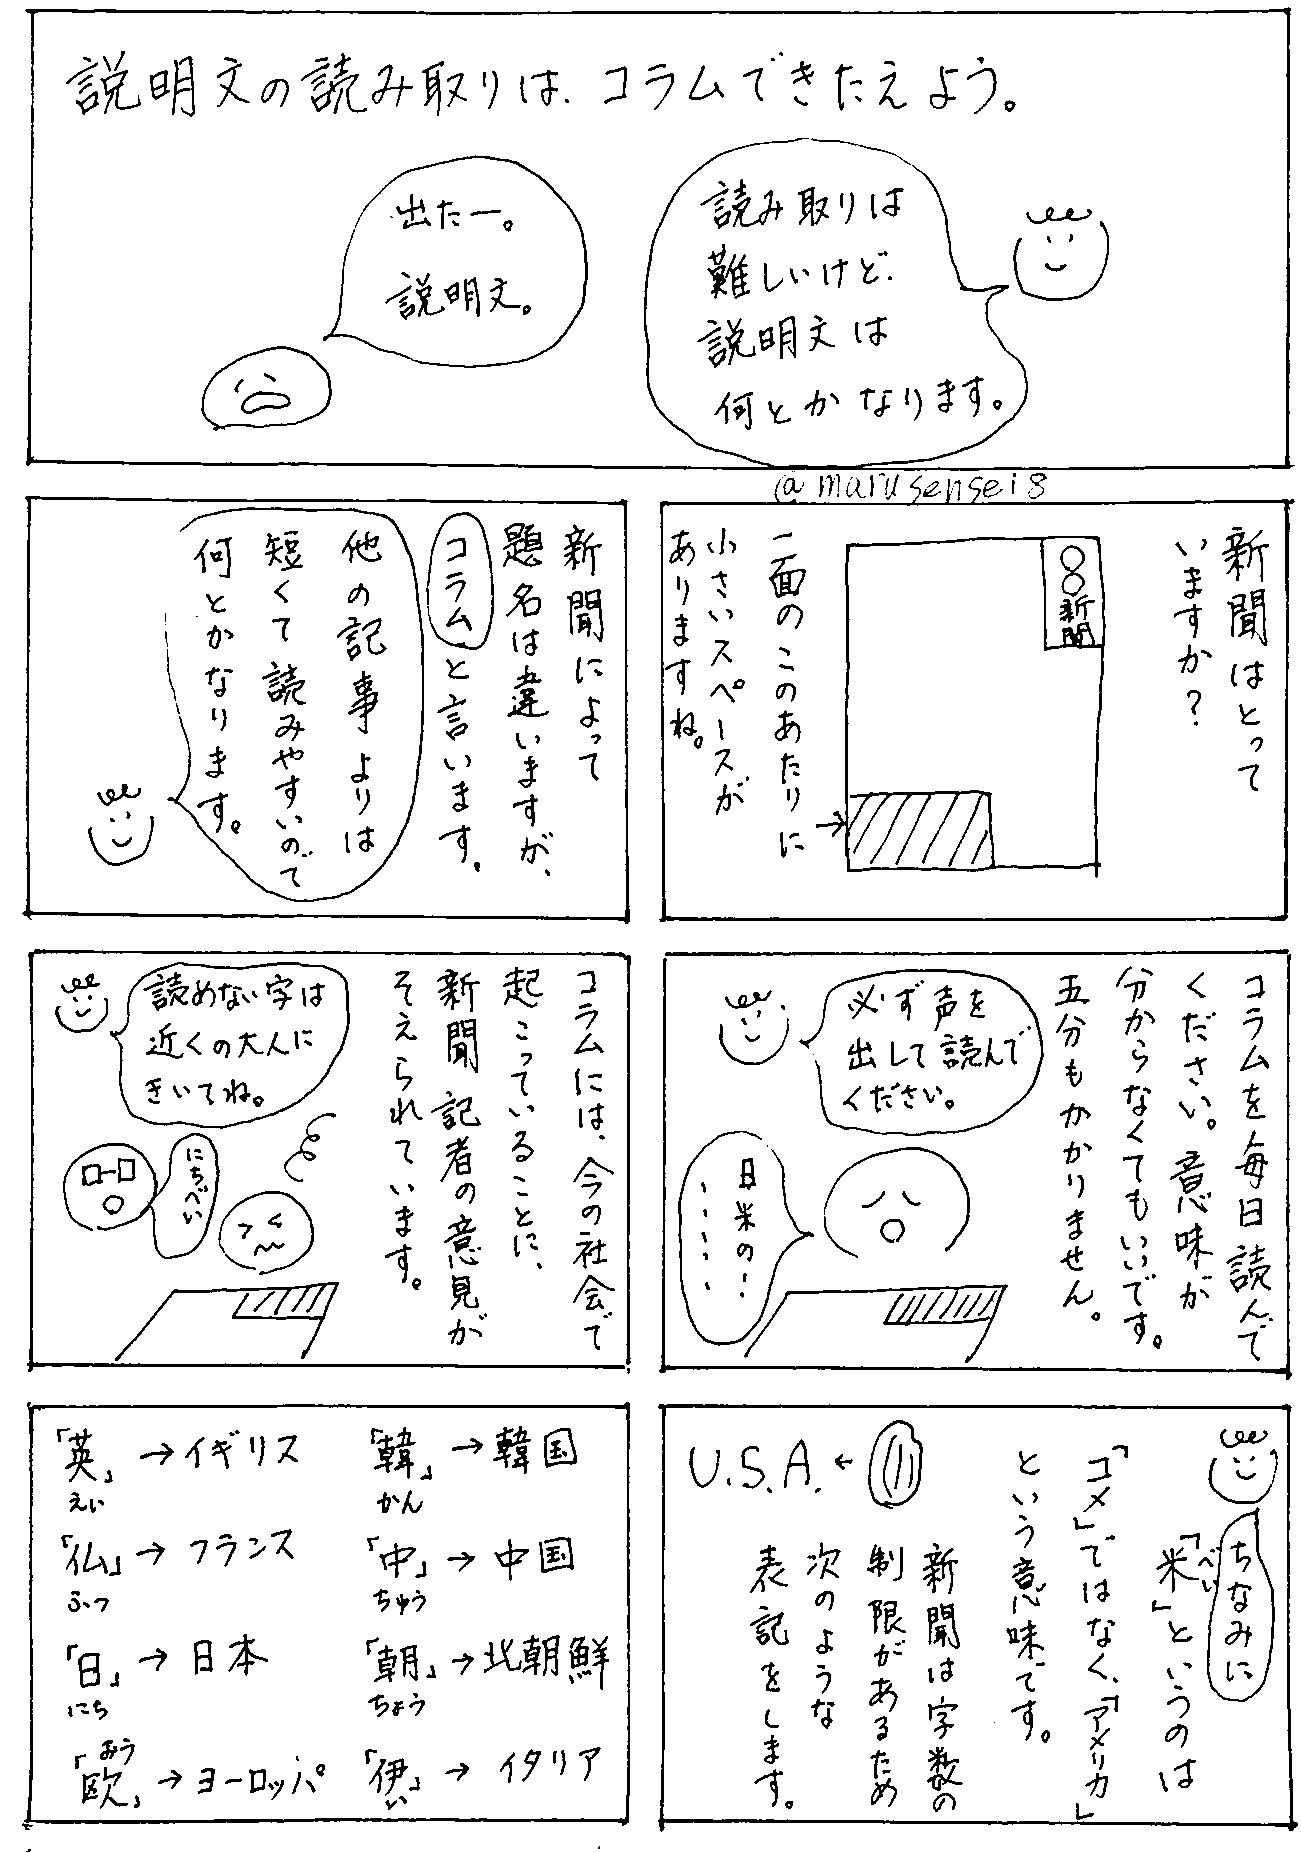 説明文の読み取りは、コラムできたえよう。
読み取りは
難しいけど、
説明文は
何とかなります。
出たー。
説明文。
@marusensei8
新聞はとって
いますか？
○○新聞
一面のこのあたりに
小さいスペースが
ありますね。
新聞によって
題名は違いますが、
コラムと言います。
他の記事よりは
短くて読みやすいので
何とかなります。
コラムを毎日読んで
ください。意味が
分からなくてもいいです。
五分もかかりません。
必ず声を
出して読んで
ください。
日米の…
コラムには、今の社会で
起こっていることに、
新聞記者の意見が
そえられています。
読めない字は
近くの大人に
きいてね。
にちべい
ちなみに
「米」というのは
べい
「コメ」ではなく、「アメリカ」
という意味です。
U.S.A. ←
新聞は字数の
制限があるため
次のような
表記をします。
「韓」→韓国
かん
「中」→中国
ちゅう
「朝」→北朝鮮
ちょう
「伊」→イタリア
い
「英」→イギリス
えい
「仏」→フランス
ふつ
「日」→日本
にち
「欧」→ヨーロッパ
おう